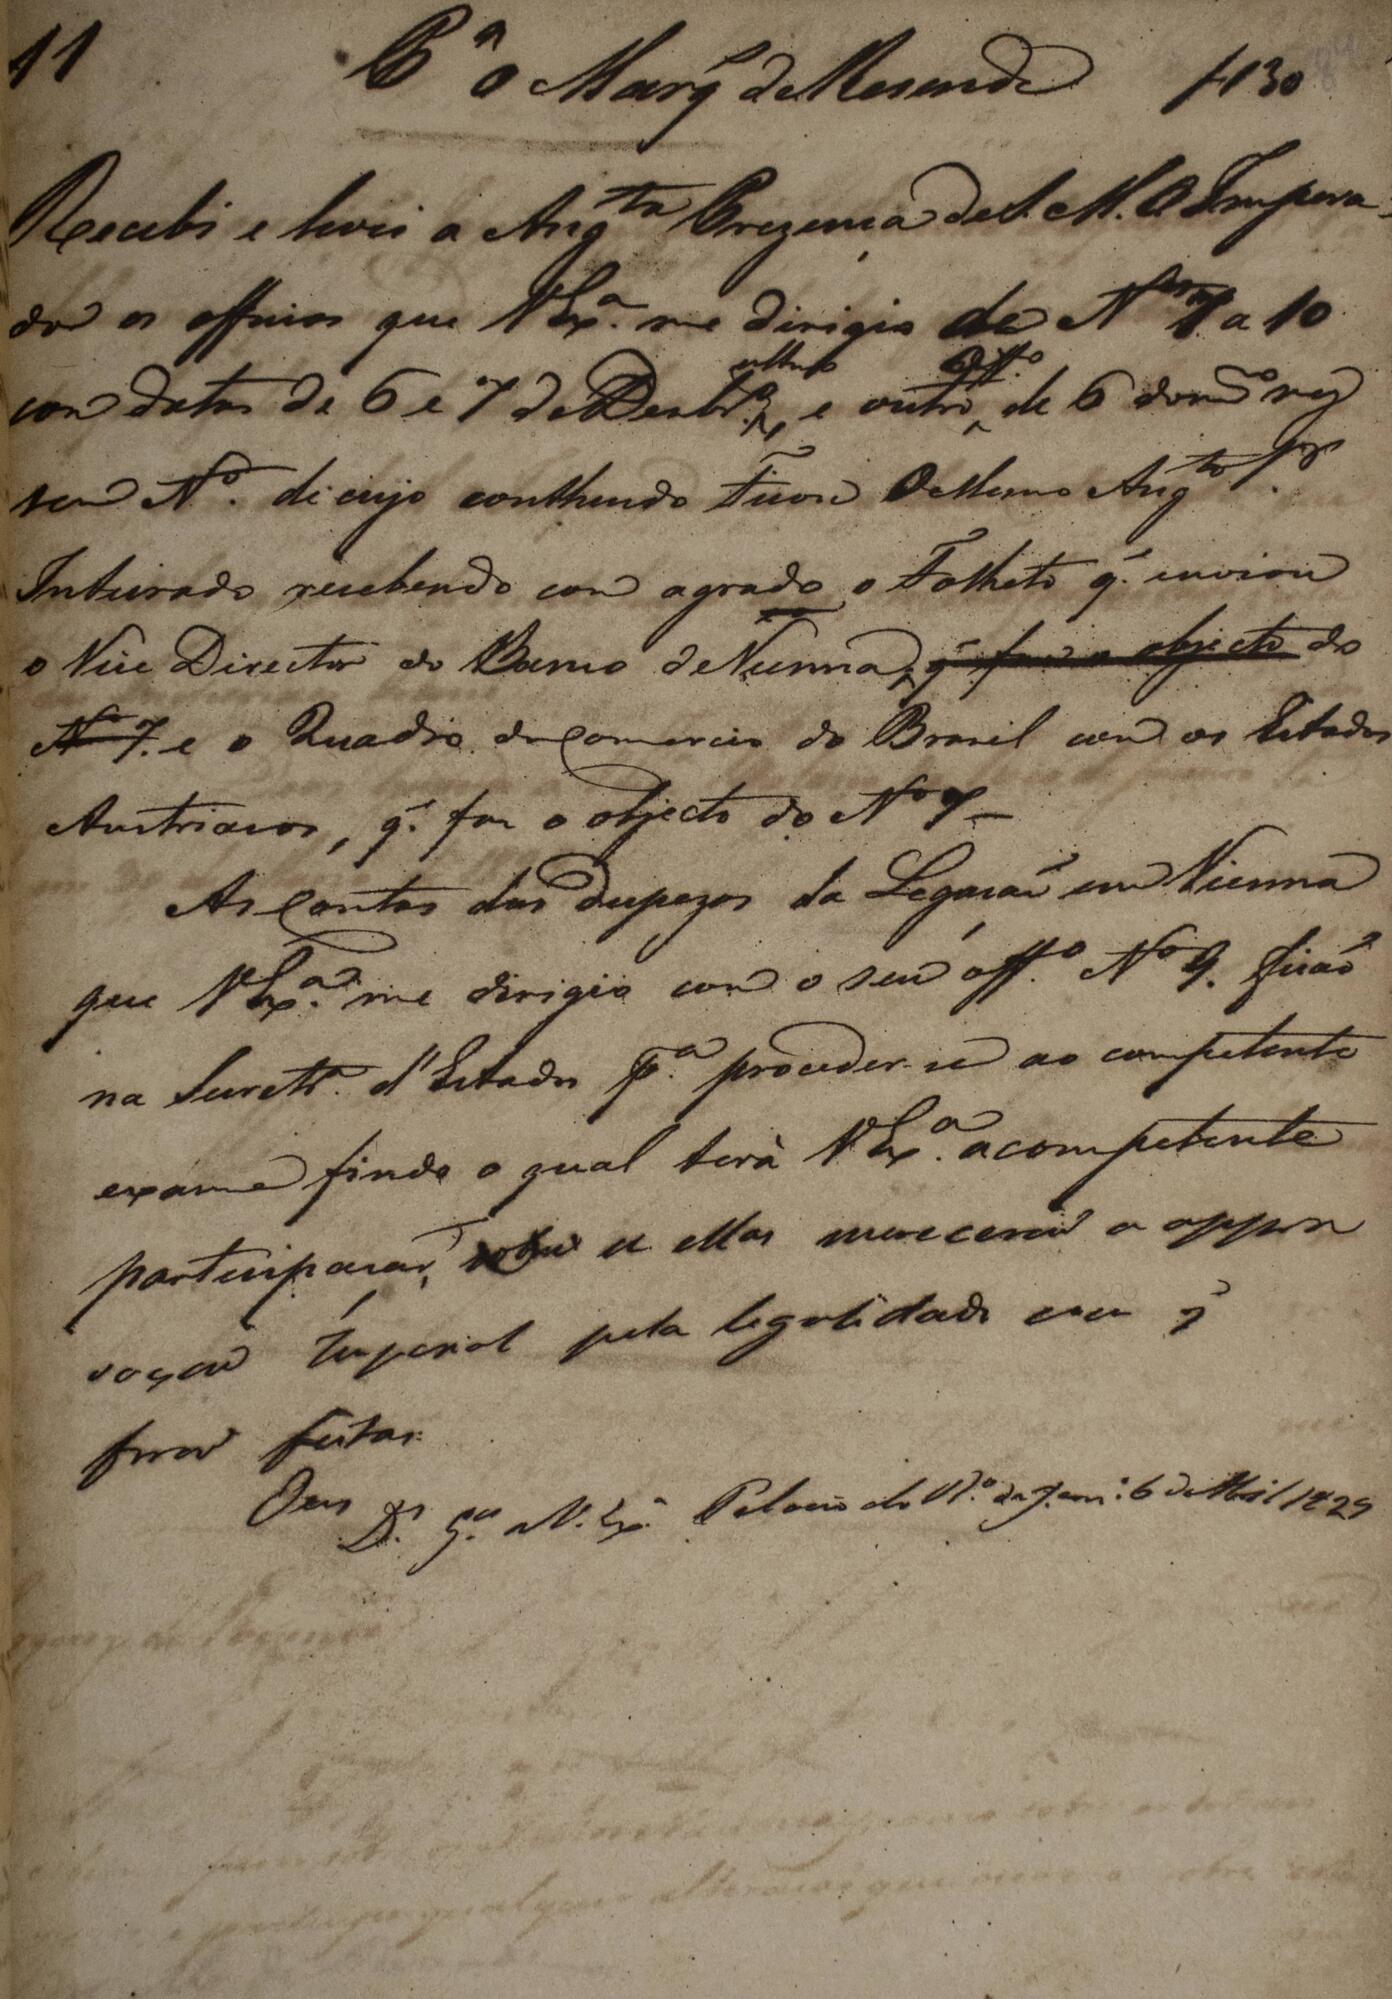 11 Pª o Marq. de Resende f 130
Recebi e levei a Augta Prezença de S. M. O Impera-
dor os officios que V Exª. me dirigio de Nos 7 a 10
com datas de 6 e 7 de Dezbro ultimo, e outro Offo de 6 do mo mez
sem No. de cujo conthendo Ficou O Mesmo Augto Sr
Inteirado recebendo com agrado o Folheto q. enviou
o Vice Director do Banco de Vienna, q. faz o objecto do
No 7. e o Quadro do Comercio do Brasil com os Estados
Austriacos, q. faz o objecto do No 7
As Contas das Despezas da Legação em Vienna
que V Exª. me dirigio com o seu offo No 9. ficão
na Secretr. d'Estado pª. proceder-se ao competente
exame findo o qual terà V Exª. a competente
participação, se ellas merecerão a appro
vação Imperial pela legalidade com q
forão feitas.
Deus Ds. gde a V. Exª Palacio do Rº. de Janr: 6 de Abril 1829